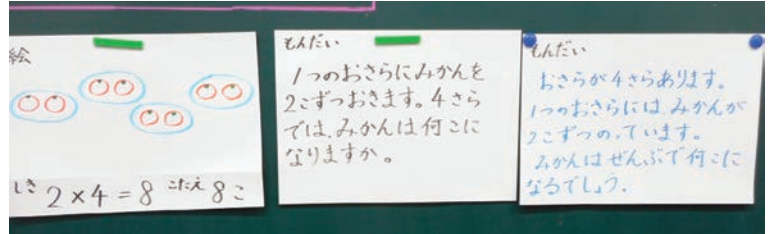 絵
しき 2×4=8 こたえ 8こ
もんだい
1つのおさらにみかんを
2こずつおきます。4さら
では、みかんは何こに
なりますか。
もんだい
おさらが4さらあります。
1つのおさらには、みかんが
2こずつのっています。
みかんはぜんぶで何こに
なるでしょう。